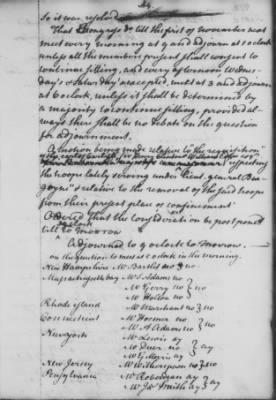 So it was resolved
That Congress do till the first of November next
meet every morning at 9 and adjourn at 1 o clock
unless all the members present shall consent to
continue sitting, and every afternoon Wednes-
day's & Saturday's excepted, meet at 3 and adjourn
at 6 o clock, unless it shall be determined by
a majority to continue sitting, provided al-
ways there shall be no debate on the question
for adjournment.
A motion being made relative to the
respecting
the troops lately serving under Lieut. general Bur-
goyne & relative to the removal of the said troops
from their present place of confinement
Ordered That the consideration be postponed
till to Morrow
Adjourned to 9 o clock to Morrow.
on the question to meet at 9 o clock in the morning.
New Hampshire Mr Bartlet no } no
Massachusetts bay Mr S Adams no
Mr Gerry no } no
Mr Holten no
Rhode island Mr Marchant no } no
Connecticut Mr Hosmer no
Mr A Adams no } no
New york Mr Lewis ay
Mr Duer no } ay
Mr G Morris ay
New Jersey Mr Witherspoon no } no
Pensylvania Mr Roberdeau ay
Mr Jn Smith ay } ay